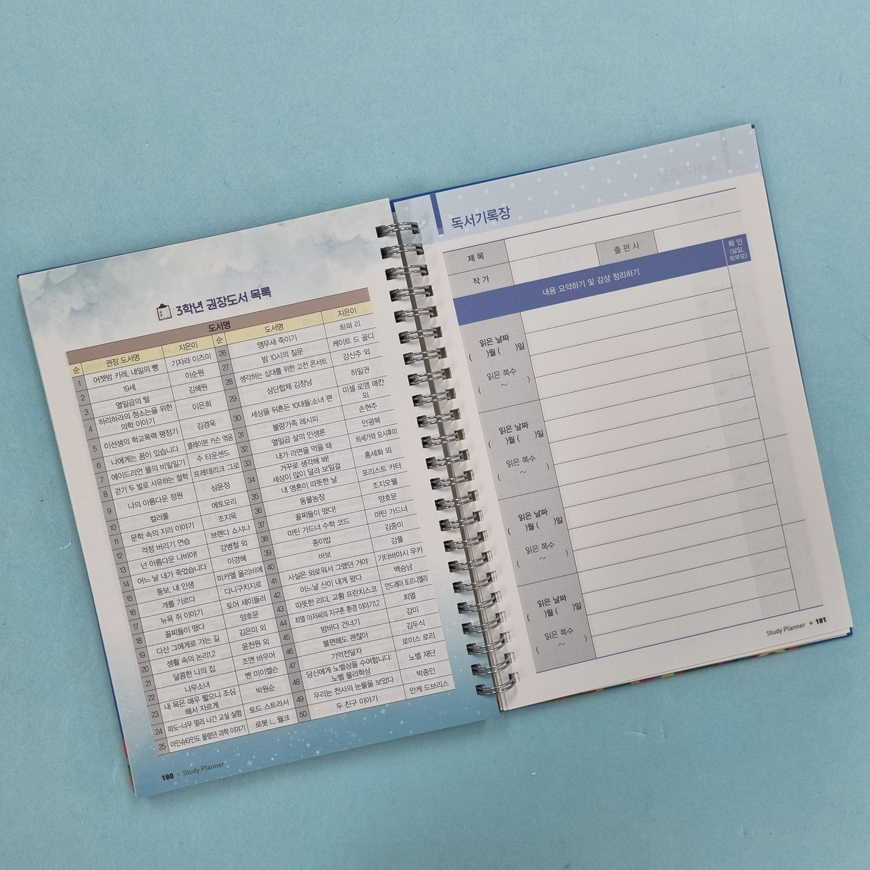 3학년 권장도서 목록
도서명
순 권장 도서명 지은이 순 도서명 지은이
1 어젯밤 카레, 내일의 빵 기자라 이즈미
2 19세 이순원
3 열일곱의 털 김혜원
4 하리하라의 청소는을 위한 의학 이야기 이은희
5 이선생의 학교폭력 평정기 김경욱
6 나에게는 꿈이 있습니다 클레이본 카슨 엮음
7 에이드리언 몰의 비밀일기 수 타운센드
8 걷기 두 발로 사유하는 철학 프레데리크 그로
9 나의 아름다운 정원 심윤정
10 컬러풀 에토모리
11 문학 속의 지리 이야기 조지욱
12 걱정 버리기 연습 브렌다 쇼샤나
13 넌 아름다운 나비야! 강병철 외
14 어느 날 내가 죽었습니다 이경혜
15 뚱보, 내 인생 미카엘 올리비에
16 개를 기르다 다니구치지로
17 뉴욕 쥐 이야기 토어 세이들러
18 꼴찌들이 떴다 양호문
19 다산 그에게로 가는 길 김은미 외
20 생활 속의 논리1,2 윤천원 외
21 달콤한 나의 집 조앤 바우어
22 나무소녀 벤 마이켈슨
23 내 목은 매우 짧으니 조심해서 자르게 박원순
24 파도-너무 멀리 나간 교실 실험 토드 스트라서
25 아인슈타인도 몰랐던 과학 이야기 로봇 L. 월크
26 앵무새 죽이기 하퍼 리
27 밤 10시의 질문 케이트 드 골디
28 생각하는 십대를 위한 고전 콘서트 강신주 외
29 삼단합체 김창남 하일권
30 세상을 뒤흔든 10대들:소녀 편 미셸 로엠 매칸 외
31 불량가족 레시피 손현주
32 열일곱 살의 인생론 안광복
33 내가 라면을 먹을 때 하세가와 요시후미
34 거꾸로 생각해 봐! 세상이 많이 달라 보일걸 홍세화 외
35 내 영혼이 따뜻한 날 포리스트 카터
36 동물농장 조지오웰
37 꼴찌들이 떴다! 양호문
38 마틴 가드너 수학 코드 마틴 가드너
39 종이밥 김중미
40 바보 강풀
41 사실은 외로워서 그랬던 거야
42 어느날 신이 내게 왔다 백승남
43 따뜻한 리더, 교황 프란치스코 안드레아 토르니엘리
44 최열 아저씨의 지구촌 환경 이야기1,2 최열
45 밤바다 건너기 강미
46 불편해도 괜찮아 김두식
47 기억전달자 로이스 로리
48 당신에게 노벨상을 수여합니다: 노벨 물리학상 노벨 재단
49 우리는 천사의 눈물을 보았다 박종인
50 두 친구 이야기 안케 드브리스
180 + Study Planner
독서기록장
제 목 출 판 사
작 가
내용 요약하기 및 감상 정리하기 확 인 (담임, 학부모)
읽은 날짜
( )월 ( )일
읽은 쪽수
( ~ )
읽은 날짜
( )월 ( )일
읽은 쪽수
( ~ )
읽은 날짜
( )월 ( )일
읽은 쪽수
( ~ )
읽은 날짜
( )월 ( )일
읽은 쪽수
( ~ )
Study Planner + 181